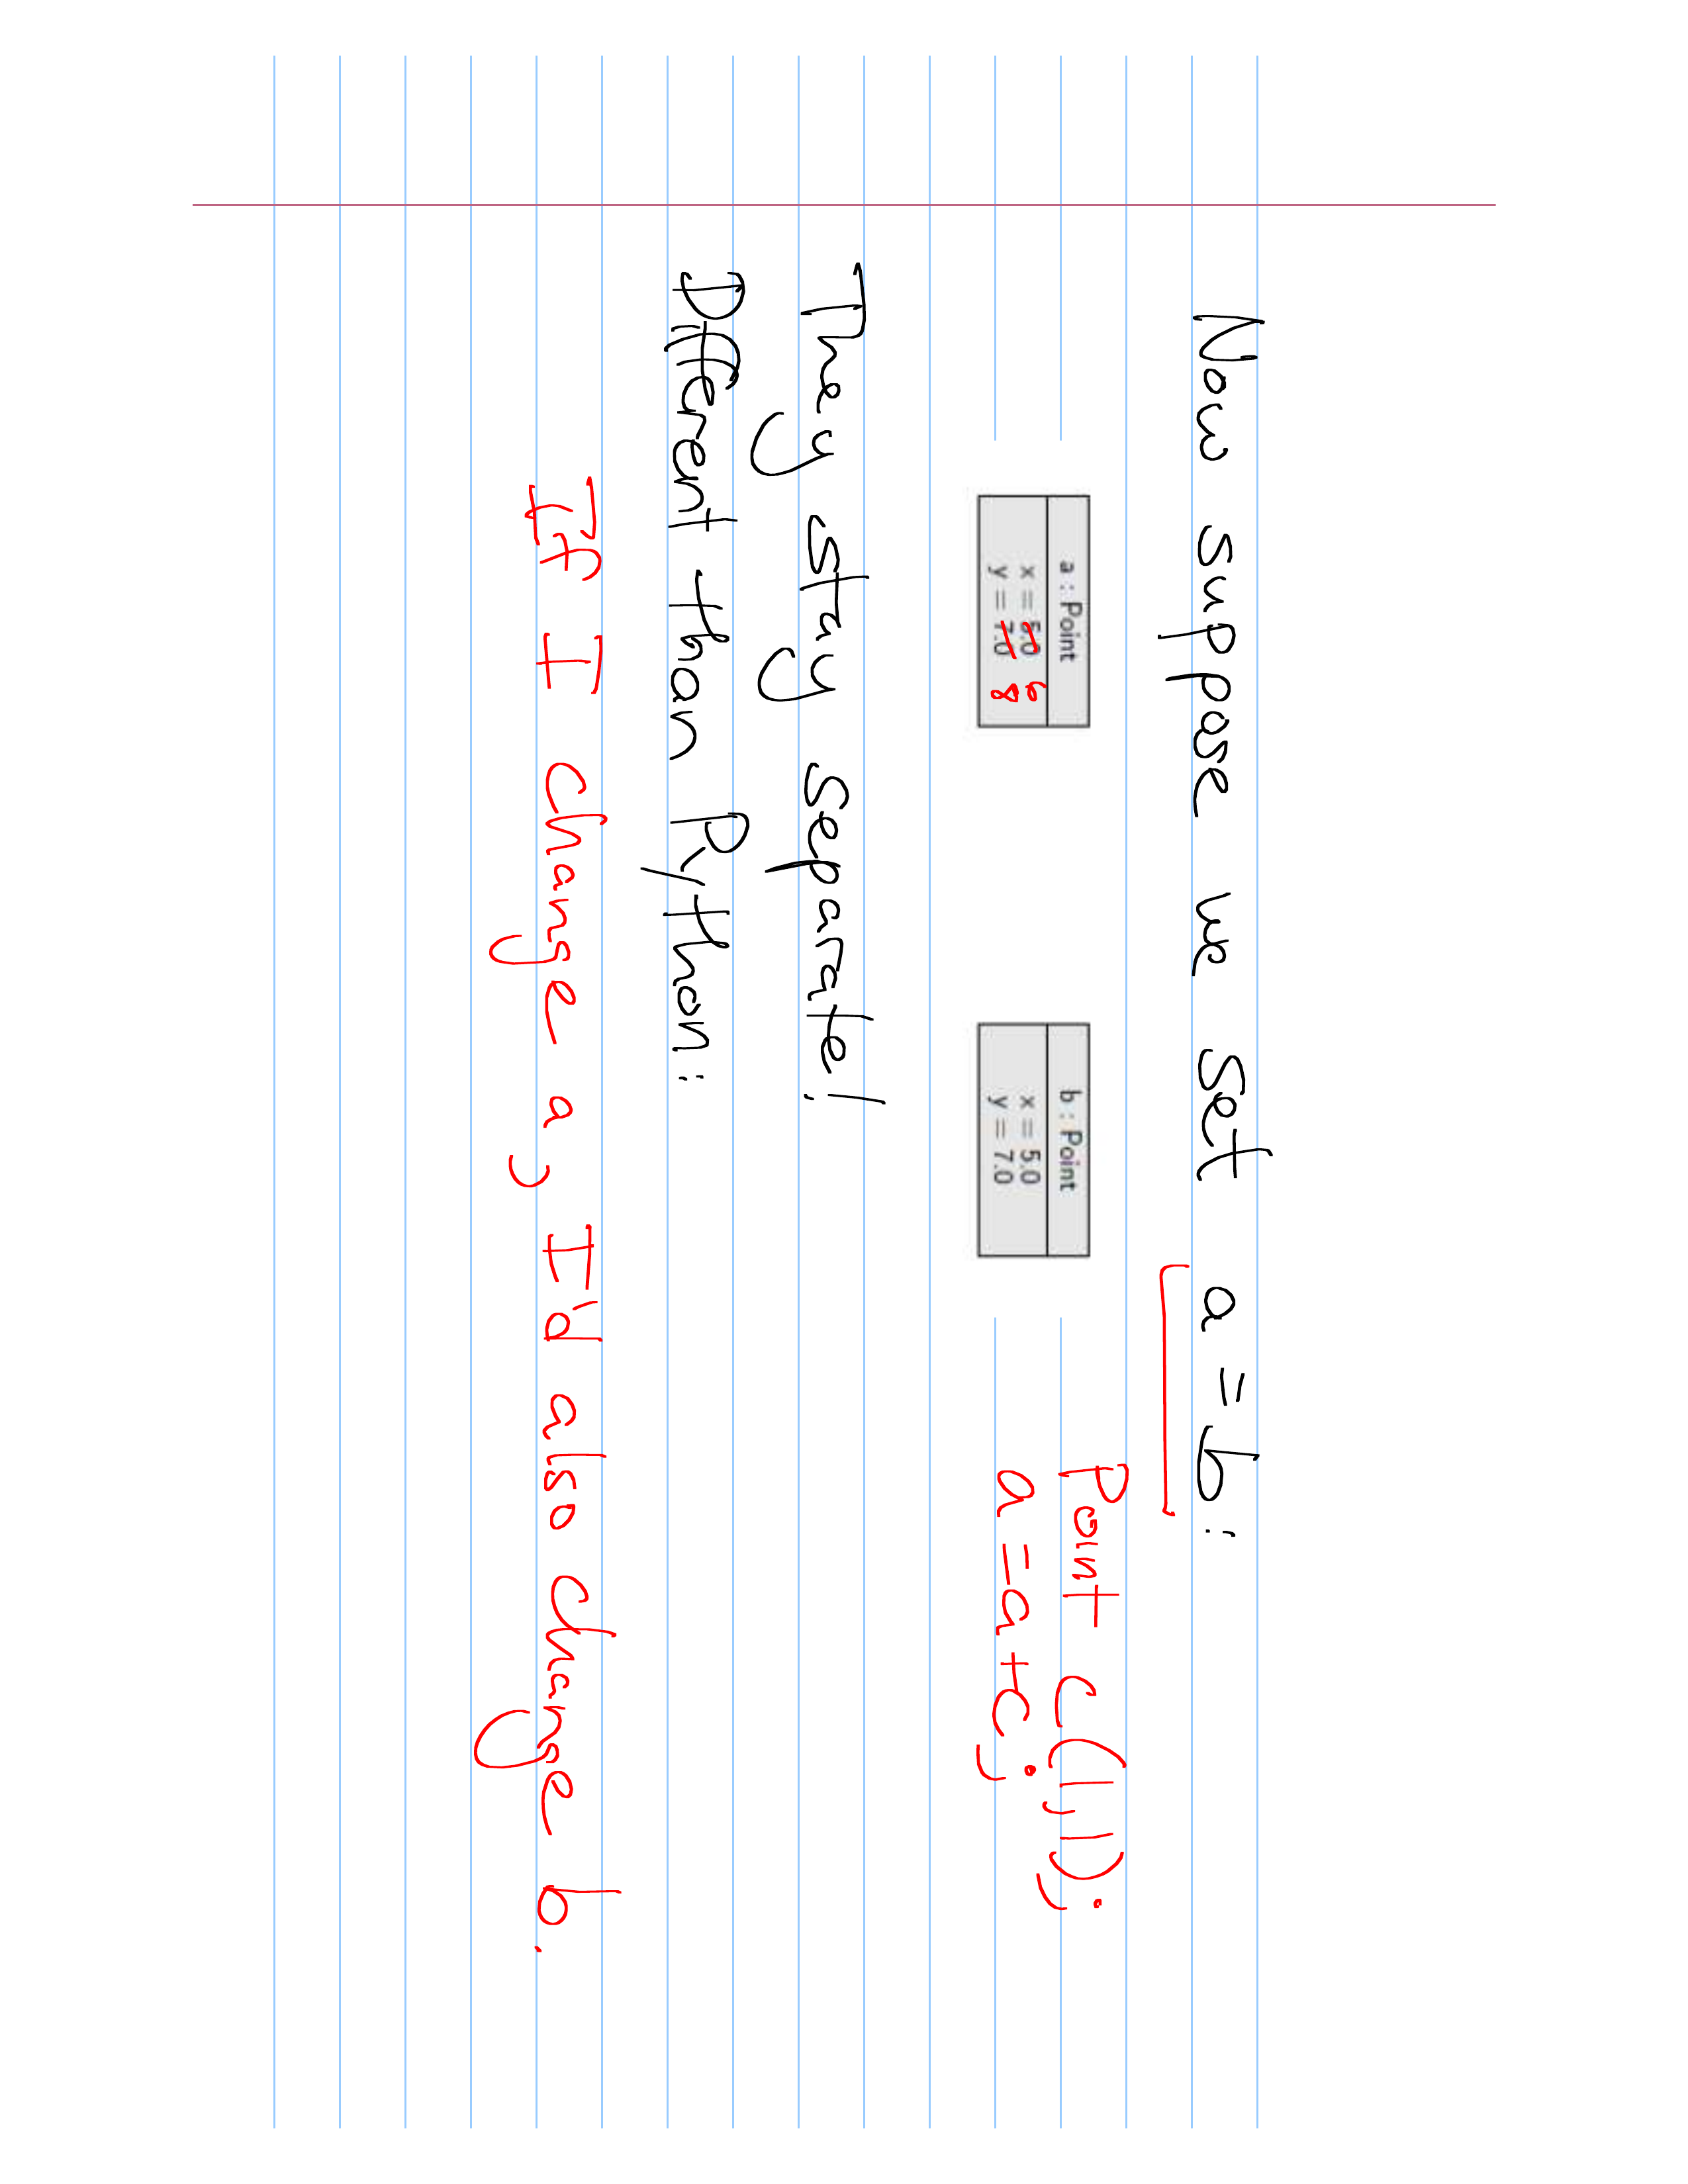 Now suppose we set a = b:
a : Point
x = 5.0 6
y = 7.0 8
b : Point
x = 5.0
y = 7.0
Point c(1,1);
a = a + c;
They stay separate!
Different than Python:
If I change a, I'd also change b.